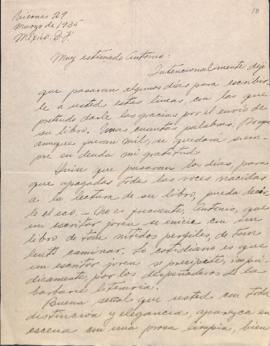 Misiones 29
marzo de 1935
México. D.F.
10
Muy estimado Antonio:
Intencionalmente dejé
que pasaran algunos días para escribir-
le a usted estas líneas con las que
pretendo darle las gracias por el envío de
su libro. Unas cuantas palabras. Porque
aunque fueran mil, se quedaría siem-
pre en deuda mi gratitud.
Quise que pasaran los días, para
que apagadas todas las voces nacidas
a la lectura de su libro, pueda decir-
le el eco. No es frecuente, Antonio, que
un escritor joven se inicie con un
libro de tan nítidos perfiles de
caminar. Lo cotidiano es que
un escritor joven se precipite, impú-
dicamente, por los despeñaderos de la
barbarie literaria.
Buena señal que usted con toda
distinción y elegancia, aparezca en
escena con una prosa limpia, bien